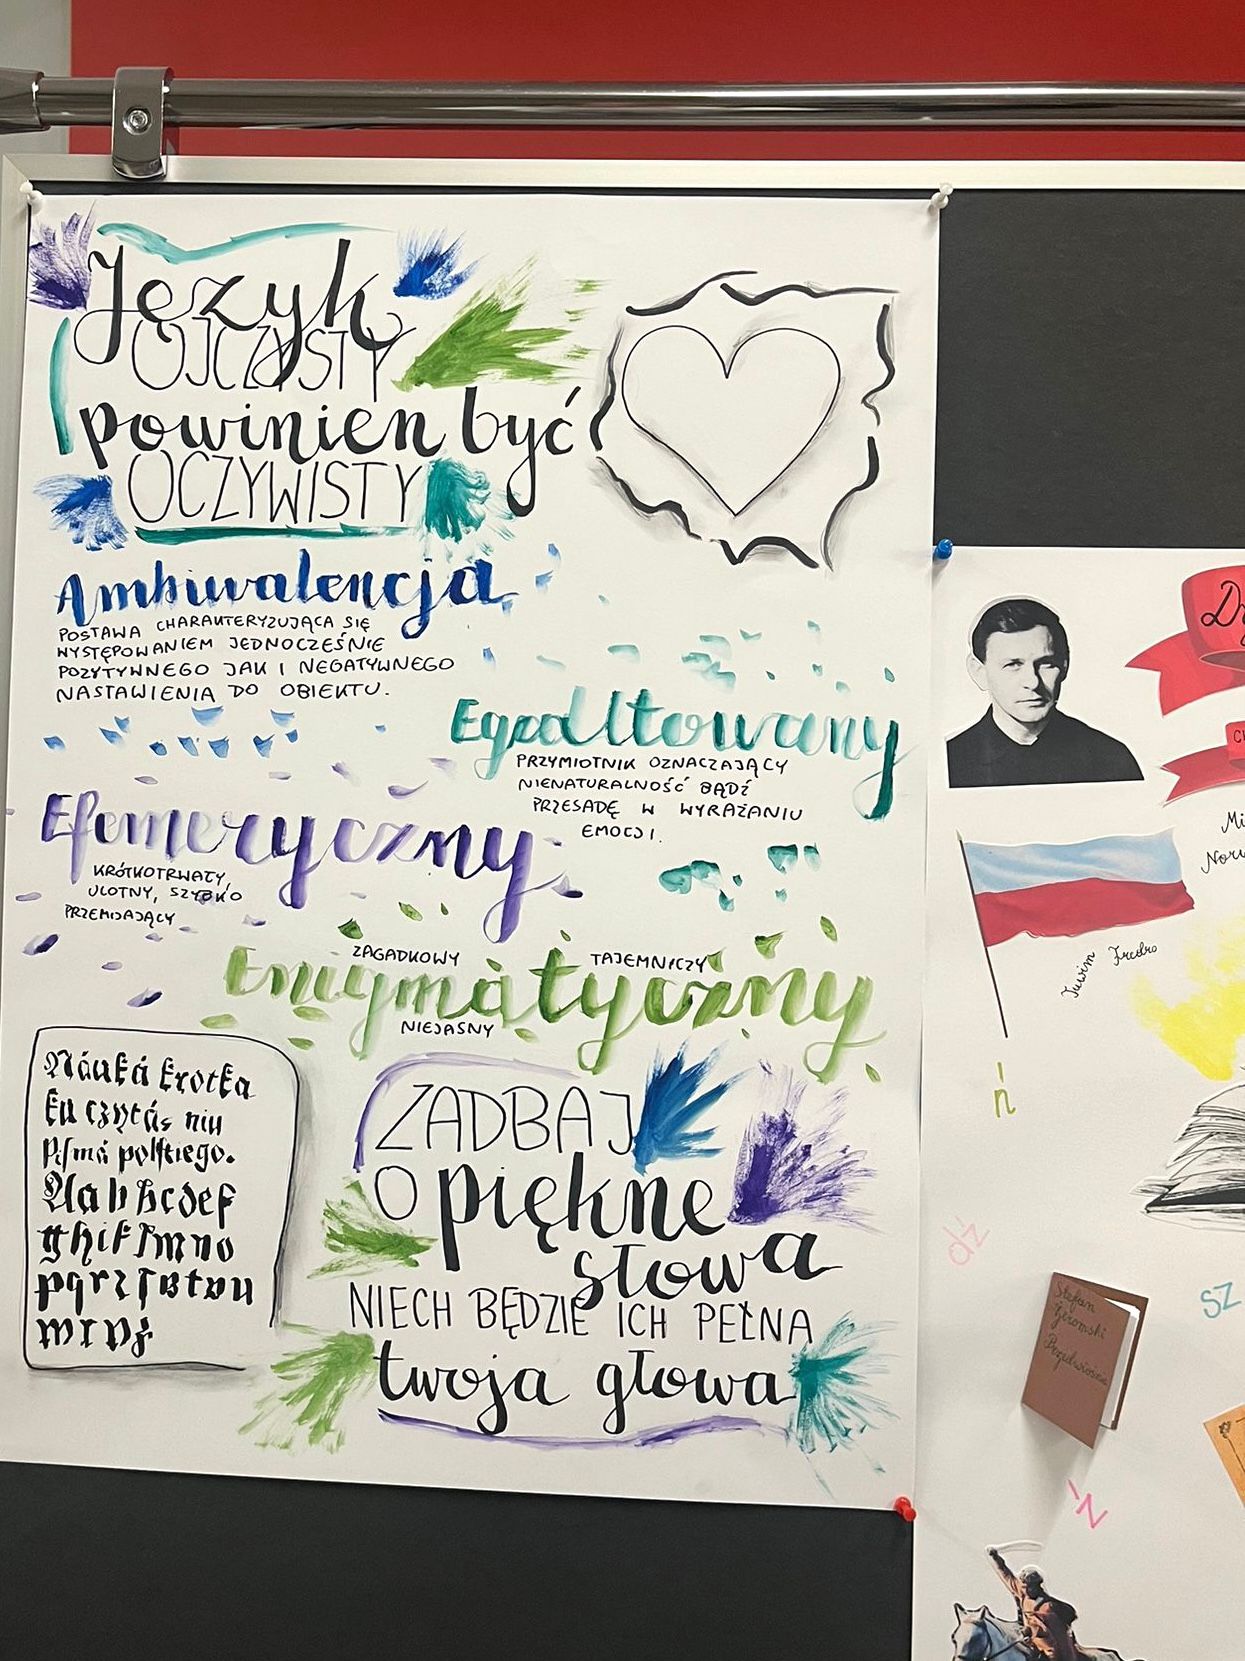 Język
OJCZYSTY
powinien być
OCZYWISTY
Ambiwalencja
POSTAWA CHARAKTERYZUJĄCA SIĘ
WYSTĘPOWANIEM JEDNOCZEŚNIE
POZYTYWNEGO JAK I NEGATYWNEGO
NASTAWIENIA DO OBIEKTU.
Egzaltowany
PRZYMIOTNIK OZNACZAJĄCY
NIENATURALNOŚĆ BĄDŹ
PRZESADĘ W WYRAŻANIU
EMOCJI.
Efemeryczny
KRÓTKOTRWAŁY,
ULOTNY, SZYBKO
PRZEMIJAJĄCY
ZAGADKOWY
TAJEMNICZY
Enigmatyczny
NIEJASNY
Náuká krotka
ku czytás niu
Písmá polſkiego.
ZADBAJ
O piękne
słowa
NIECH BĘDZIE ICH PEŁNA
twoja głowa
Tuwim
Fredro
ń
dź
sz
Stefan
Żeromski
Przedwiośnie
ź